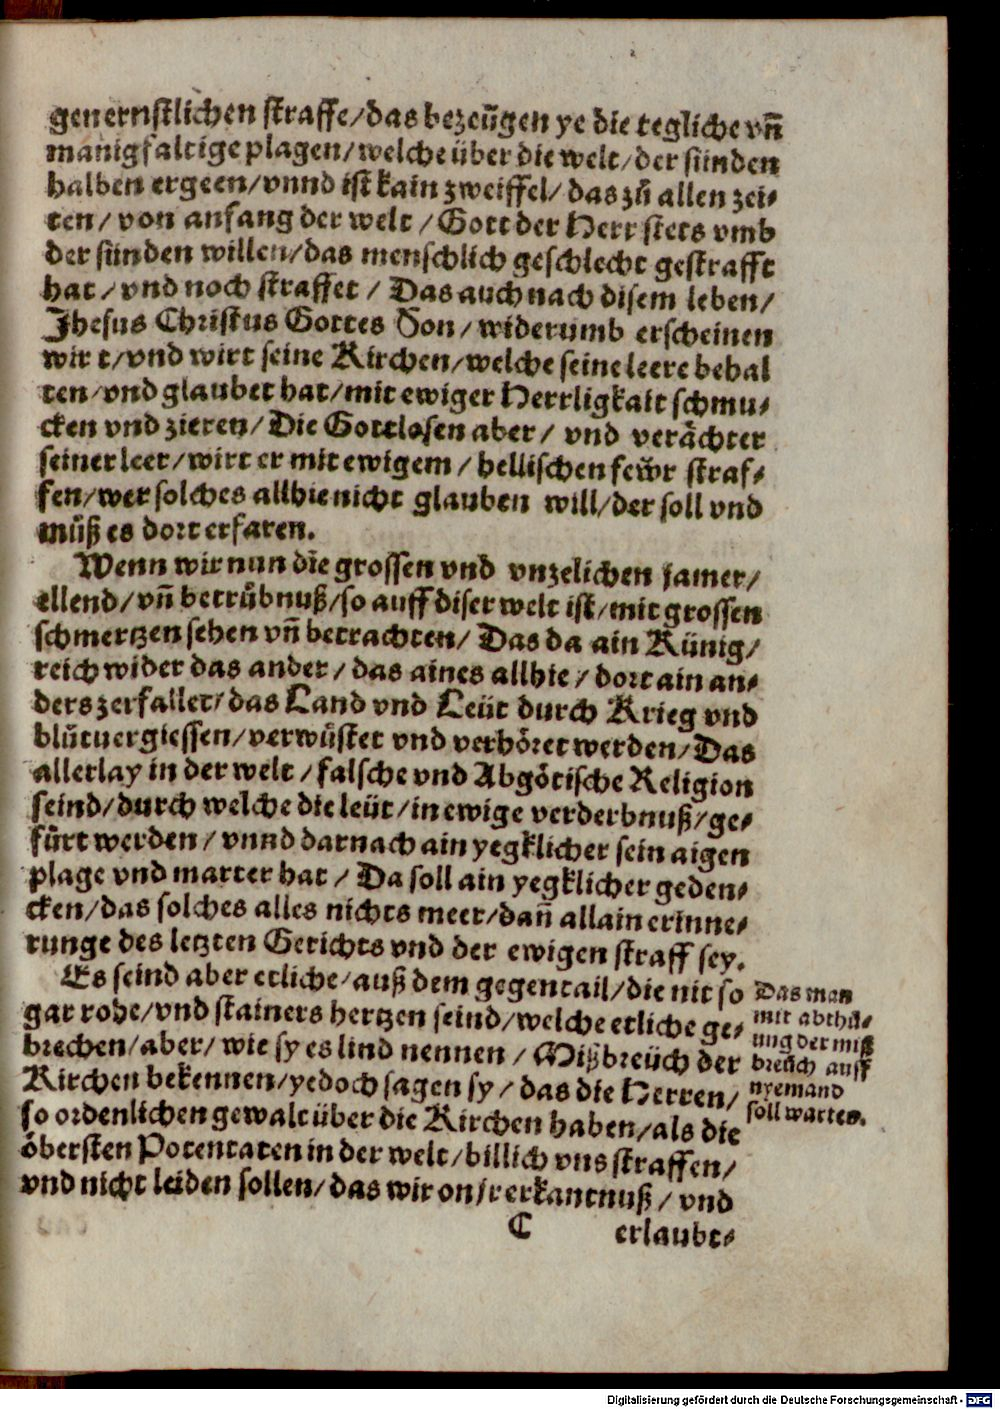 gen ernstlichen straffe/das bezeügen ye die tegliche vñ
manigfaltige plagen/welche über die welt/der sünden
halben ergeen/vnnd ist kain zweiffel/das zů allen zei⸗
ten/von anfang der welt/Gott der Herr stets vmb
der sünden willen/das menschlich geschlecht gestrafft
hat/vnd noch straffet/Das auch nach disem leben/
Jhesus Christus Gottes Son/widerumb erscheinen
wirt/vnd wirt seine Kirchen/welche seine leere behal
ten/vnd glaubet hat/mit ewiger Herrligkait schmu⸗
cken vnd zieren/Die Gottlosen aber/vnd verächter
seiner leer/wirt er mit ewigem/hellischen fewr straf⸗
fen/wer solches allhie nicht glauben will/der soll vnd
můß es dort erfaren.
Wenn wir nun die grossen vnd vnzelichen jamer/
ellend/vñ betrübnuß/so auff diser welt ist/mit grossen
schmertzen sehen vñ betrachten/Das da ain Künig/
reich wider das ander/das aines allhie/dort ain an⸗
ders zerfallet/das Land vnd Leüt durch Krieg vnd
blůtuergiessen/verwüstet vnd verhöret werden/Das
allerlay in der welt/falsche vnd Abgötische Religion
seind/durch welche die leüt/in ewige verderbnuß/ge⸗
fürt werden/vnnd darnach ain yegklicher sein aigen
plage vnd marter hat/Da soll ain yegklicher geden⸗
cken/das solches alles nichts meer/dañ allain erinne⸗
runge des letzten Gerichts vnd der ewigen straff sey.
Es seind aber etliche/auß dem gegentail/die nit so
gar rohe/vnd stainers hertzen seind/welche etliche ge⸗
brechen/aber/wie sy es lind nennen/Mißbreüch der
Kirchen bekennen/yedoch sagen sy/das die Herren/
so ordenlichen gewalt über die Kirchen haben/als die
öbersten Potentaten in der welt/billich vns straffen/
vnd nicht leiden sollen/das wir on jr erkantnuß/vnd
C erlaubt⸗
Das man
mit abthů⸗
ung der miß
breüch auff
nyemand
soll warten.
Digitalisierung gefördert durch die Deutsche Forschungsgemeinschaft - DFG